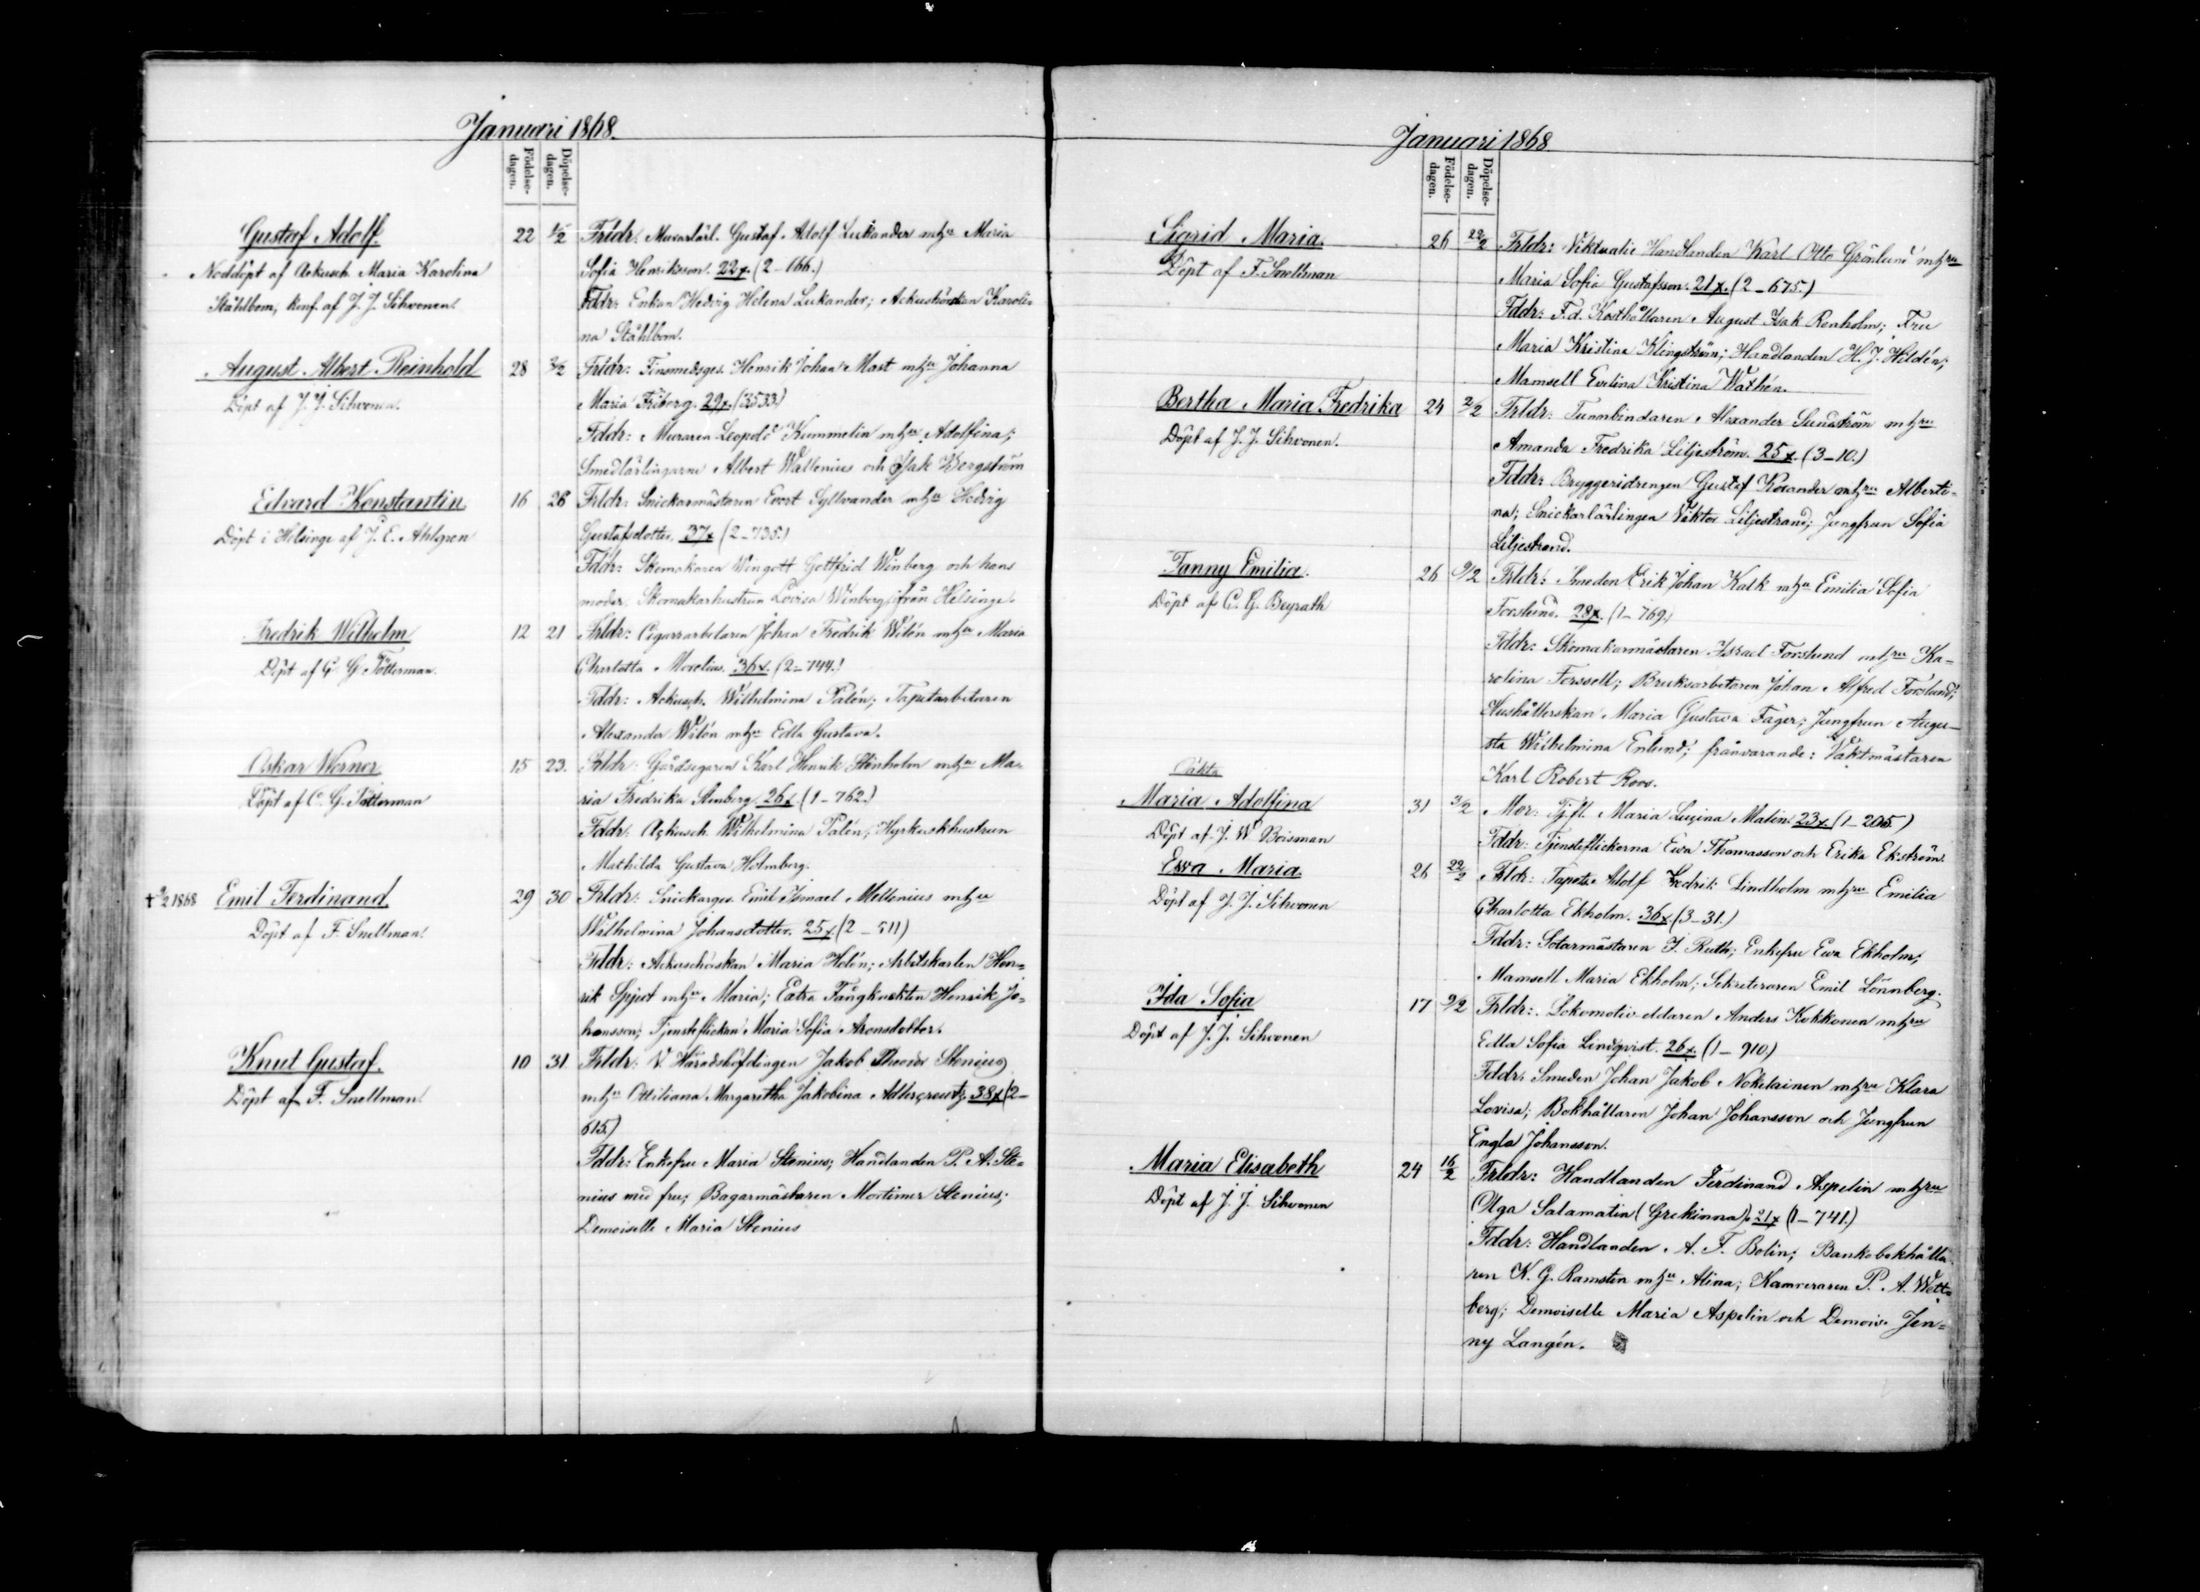 Januari 1868.
Födelse-dagen.
Döpelse-dagen.
Gustaf Adolf.
Noddöpt af Ackusch. Maria Karolina
Ståhlbom, konf. af J. J. Sihvonen.
22
1/2
Frldr: Murarlärl. Gustaf Adolf Lukander mhu Maria
Sofia Henriksson. 22 x. (2–166.)
Fddr: Enkan Hedvig Helena Lukander; Ackushörskan Karoli-
na Ståhlbom.
August Albert Reinhold
Döpt af J. J. Sihvonen.
28
2/2
Frldr: Finsmedsges. Henrik Johan Mast mhu Johanna
Maria Friberg. 29 x. (3533)
Fddr: Muraren Leopold Kummelin mhu Adolfina;
Smedlärlingarne Albert Wallenius och Isak Bergström
Edvard Konstantin.
Döpt i Helsinge af J. E. Ahlgren
16
26
Frldr: Snickarmästaren Evert Syllvander mhu Hedvig
Gustafsdotter. 37 x (2–735.)
Fddr: Skomakaren Wingott Gottfrid Winberg och hans
moder, Skomakarhustrun Lovisa Winberg ifrån Helsinge.
Fredrik Wilhelm
Döpt af C. G. Tötterman.
12
21
Frldr: Cigarrarbetaren Johan Fredrik Wilén mhu Maria
Charlotta Morelius. 36 x. (2–744.)
Fddr: Ackusch. Wilhelmina Palén; Tapetarbetaren
Alexander Wilén mhu Edla Gustava.
Oskar Werner
Döpt af C. G. Tötterman
15
23.
Frldr: Gårdsegaren Karl Henrik Stenholm mhu Ma-
ria Fredrika Stenberg 26 x (1–762.)
Fddr: Ackusch. Wilhelmina Palén; Hyrkuskhustrun
Mathilda Gustava Holmberg.
† 9/2 1868
Emil Ferdinand.
Döpt af F. Snellman.
29
30
Frldr: Snickarges. Emil Ismael Mellenius mhu
Wilhelmina Johansdotter. 25 x (2–511)
Fddr: Ackuschörskan Maria Holén; Arbetskarlen Hen-
rik Spjut mhu Maria; Extra Fångknekten Henrik Jo-
hansson; Tjensteflickan Maria Sofia Aronsdotter.
Knut Gustaf.
Döpt af F. Snellman.
10
31
Frldr: V. Häradshöfdingen Jakob Theodor Stenius
mhu Ottiliana Margaretha Jakobina Adlercreutz. 38 x (2–
615.)
Fddr: Enkefru Maria Stenius; Handlanden P. A. Ste-
nius med fru; Bagarmästaren Mortimer Stenius;
Demoiselle Maria Stenius
Januari 1868
Födelse-dagen.
Döpelse-dagen.
Sigrid Maria.
Döpt af F. Snellman
26
22/2
Frldr: Viktualie Handlanden Karl Otto Grönlund mhru
Maria Sofia Gustafsson. 21 x. (2–675.)
Fddr: F. d. Kosthållaren August Isak Renholm; Fru
Maria Kristina Klingström; Handlanden H. J. Hildén;
Mamsell Evelina Kristina Wathén.
Bertha Maria Fredrika
Döpt af J. J. Sihvonen.
24
2/2
Frldr: Tunnbindaren Alexander Sundström mhru
Amanda Fredrika Liljeström. 25 x. (3–10.)
Fddr: Bryggeridrengen Gustaf Koxander mhru Alberti-
na; Snickarlärlingen Viktor Liljestrand; Jungfrun Sofia
Liljestrand.
Fanny Emilia.
Döpt af C. G. Beyrath
26
9/2
Frldr: Smeden Erik Johan Kalk mhu Emilia Sofia
Forslund. 28 x. (1–769.)
Fddr: Skomakarmästaren Israel Forslund mhru Ka-
rolina Forssell; Bruksarbetaren Johan Alfred Forslund;
Hushållerskan Maria Gustava Fager; Jungfrun Augu-
sta Wilhelmina Enlund; frånvarande: Vaktmästaren
Karl Robert Roos.
Oäkta
Maria Adolfina
Döpt af J. W. Boisman
31
3/2
Mor: Tjfl. Maria Lucina Malin. 23 x. (1–205)
Fddr: Tjensteflickorna Ewa Thomasson och Erika Ekström.
Ewa Maria.
Döpt af J. J. Sihvonen
26
22/2
Frldr: Tapets. Adolf Fredrik Lindholm mhru Emilia
Charlotta Ekholm. 36 x (3–31.)
Fddr: Sotarmästaren J. Ruth; Enkefru Ewa Ekholm;
Mamsell Maria Ekholm; Sekreteraren Emil Lönnberg.
Ida Sofia
Döpt af J. J. Sihvonen
17
9/2
Frldr: Lokomotiveldaren Anders Kokkonen mhru
Edla Sofia Lindqvist. 26 x. (1–910.)
Fddr: Smeden Johan Jakob Nokelainen mhru Klara
Lovisa; Bokhållaren Johan Johansson och Jungfrun
Engla Johansson.
Maria Elisabeth
Döpt af J. J. Sihvonen
24
16/2
Frldr: Handlanden Ferdinand Aspelin mhru
Olga Salamatin (Grekinna). 21 x (1–741.)
Fddr: Handlanden A. F. Bolin; Bankobokhålla-
ren K. G. Ramstén mhu Alina; Kamreraren P. A. Wett-
berg; Demoiselle Maria Aspelin och Demois. Jen-
ny Langén.